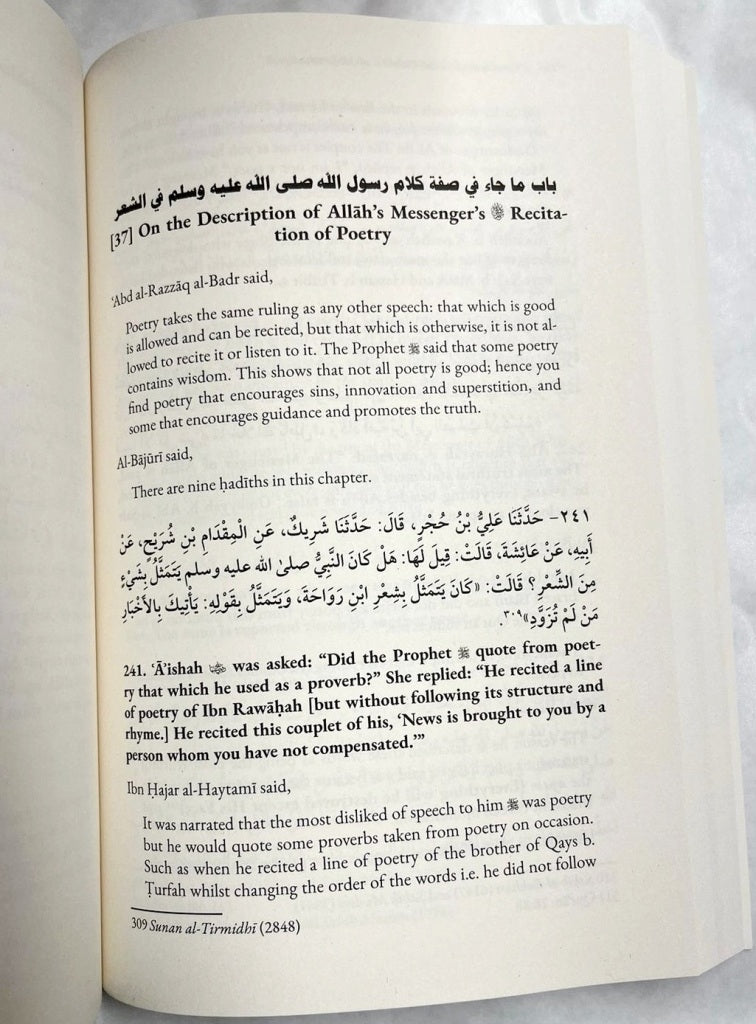 باب ما جاء في صفة كلام رسول الله صلى الله عليه وسلم في الشعر
[37] On the Description of Allāh's Messenger's ﷺ Recita-
tion of Poetry
ʿAbd al-Razzāq al-Badr said,
Poetry takes the same ruling as any other speech: that which is good
is allowed and can be recited, but that which is otherwise, it is not al-
lowed to recite it or listen to it. The Prophet ﷺ said that some poetry
contains wisdom. This shows that not all poetry is good; hence you
find poetry that encourages sins, innovation and superstition, and
some that encourages guidance and promotes the truth.
Al-Bājūrī said,
There are nine ḥadīths in this chapter.
٢٤١- حَدَّثَنَا عَلِيُّ بْنُ حُجْرٍ، قَالَ: حَدَّثَنَا شَرِيكٌ، عَنِ الْمِقْدَامِ بْنِ شُرَيْحٍ، عَنْ
أَبِيهِ، عَنْ عَائِشَةَ، قَالَتْ: قِيلَ لَهَا: هَلْ كَانَ النَّبِيُّ صلى الله عليه وسلم يَتَمَثَّلُ بِشَيْءٍ
مِنَ الشِّعْرِ؟ قَالَتْ: «كَانَ يَتَمَثَّلُ بِشِعْرِ ابْنِ رَوَاحَةَ، وَيَتَمَثَّلُ بِقَوْلِهِ: يَأْتِيكَ بِالأَخْبَارِ
مَنْ لَمْ تُزَوَّدِ»٣٠٩.
241. ʿĀʾishah was asked: "Did the Prophet ﷺ quote from poet-
ry that which he used as a proverb?" She replied: "He recited a line
of poetry of Ibn Rawāḥah [but without following its structure and
rhyme.] He recited this couplet of his, 'News is brought to you by a
person whom you have not compensated.'"
Ibn Ḥajar al-Haytamī said,
It was narrated that the most disliked of speech to him ﷺ was poetry
but he would quote some proverbs taken from poetry on occasion.
Such as when he recited a line of poetry of the brother of Qays b.
Ṭurfah whilst changing the order of the words i.e. he did not follow
309 Sunan al-Tirmidhī (2848)